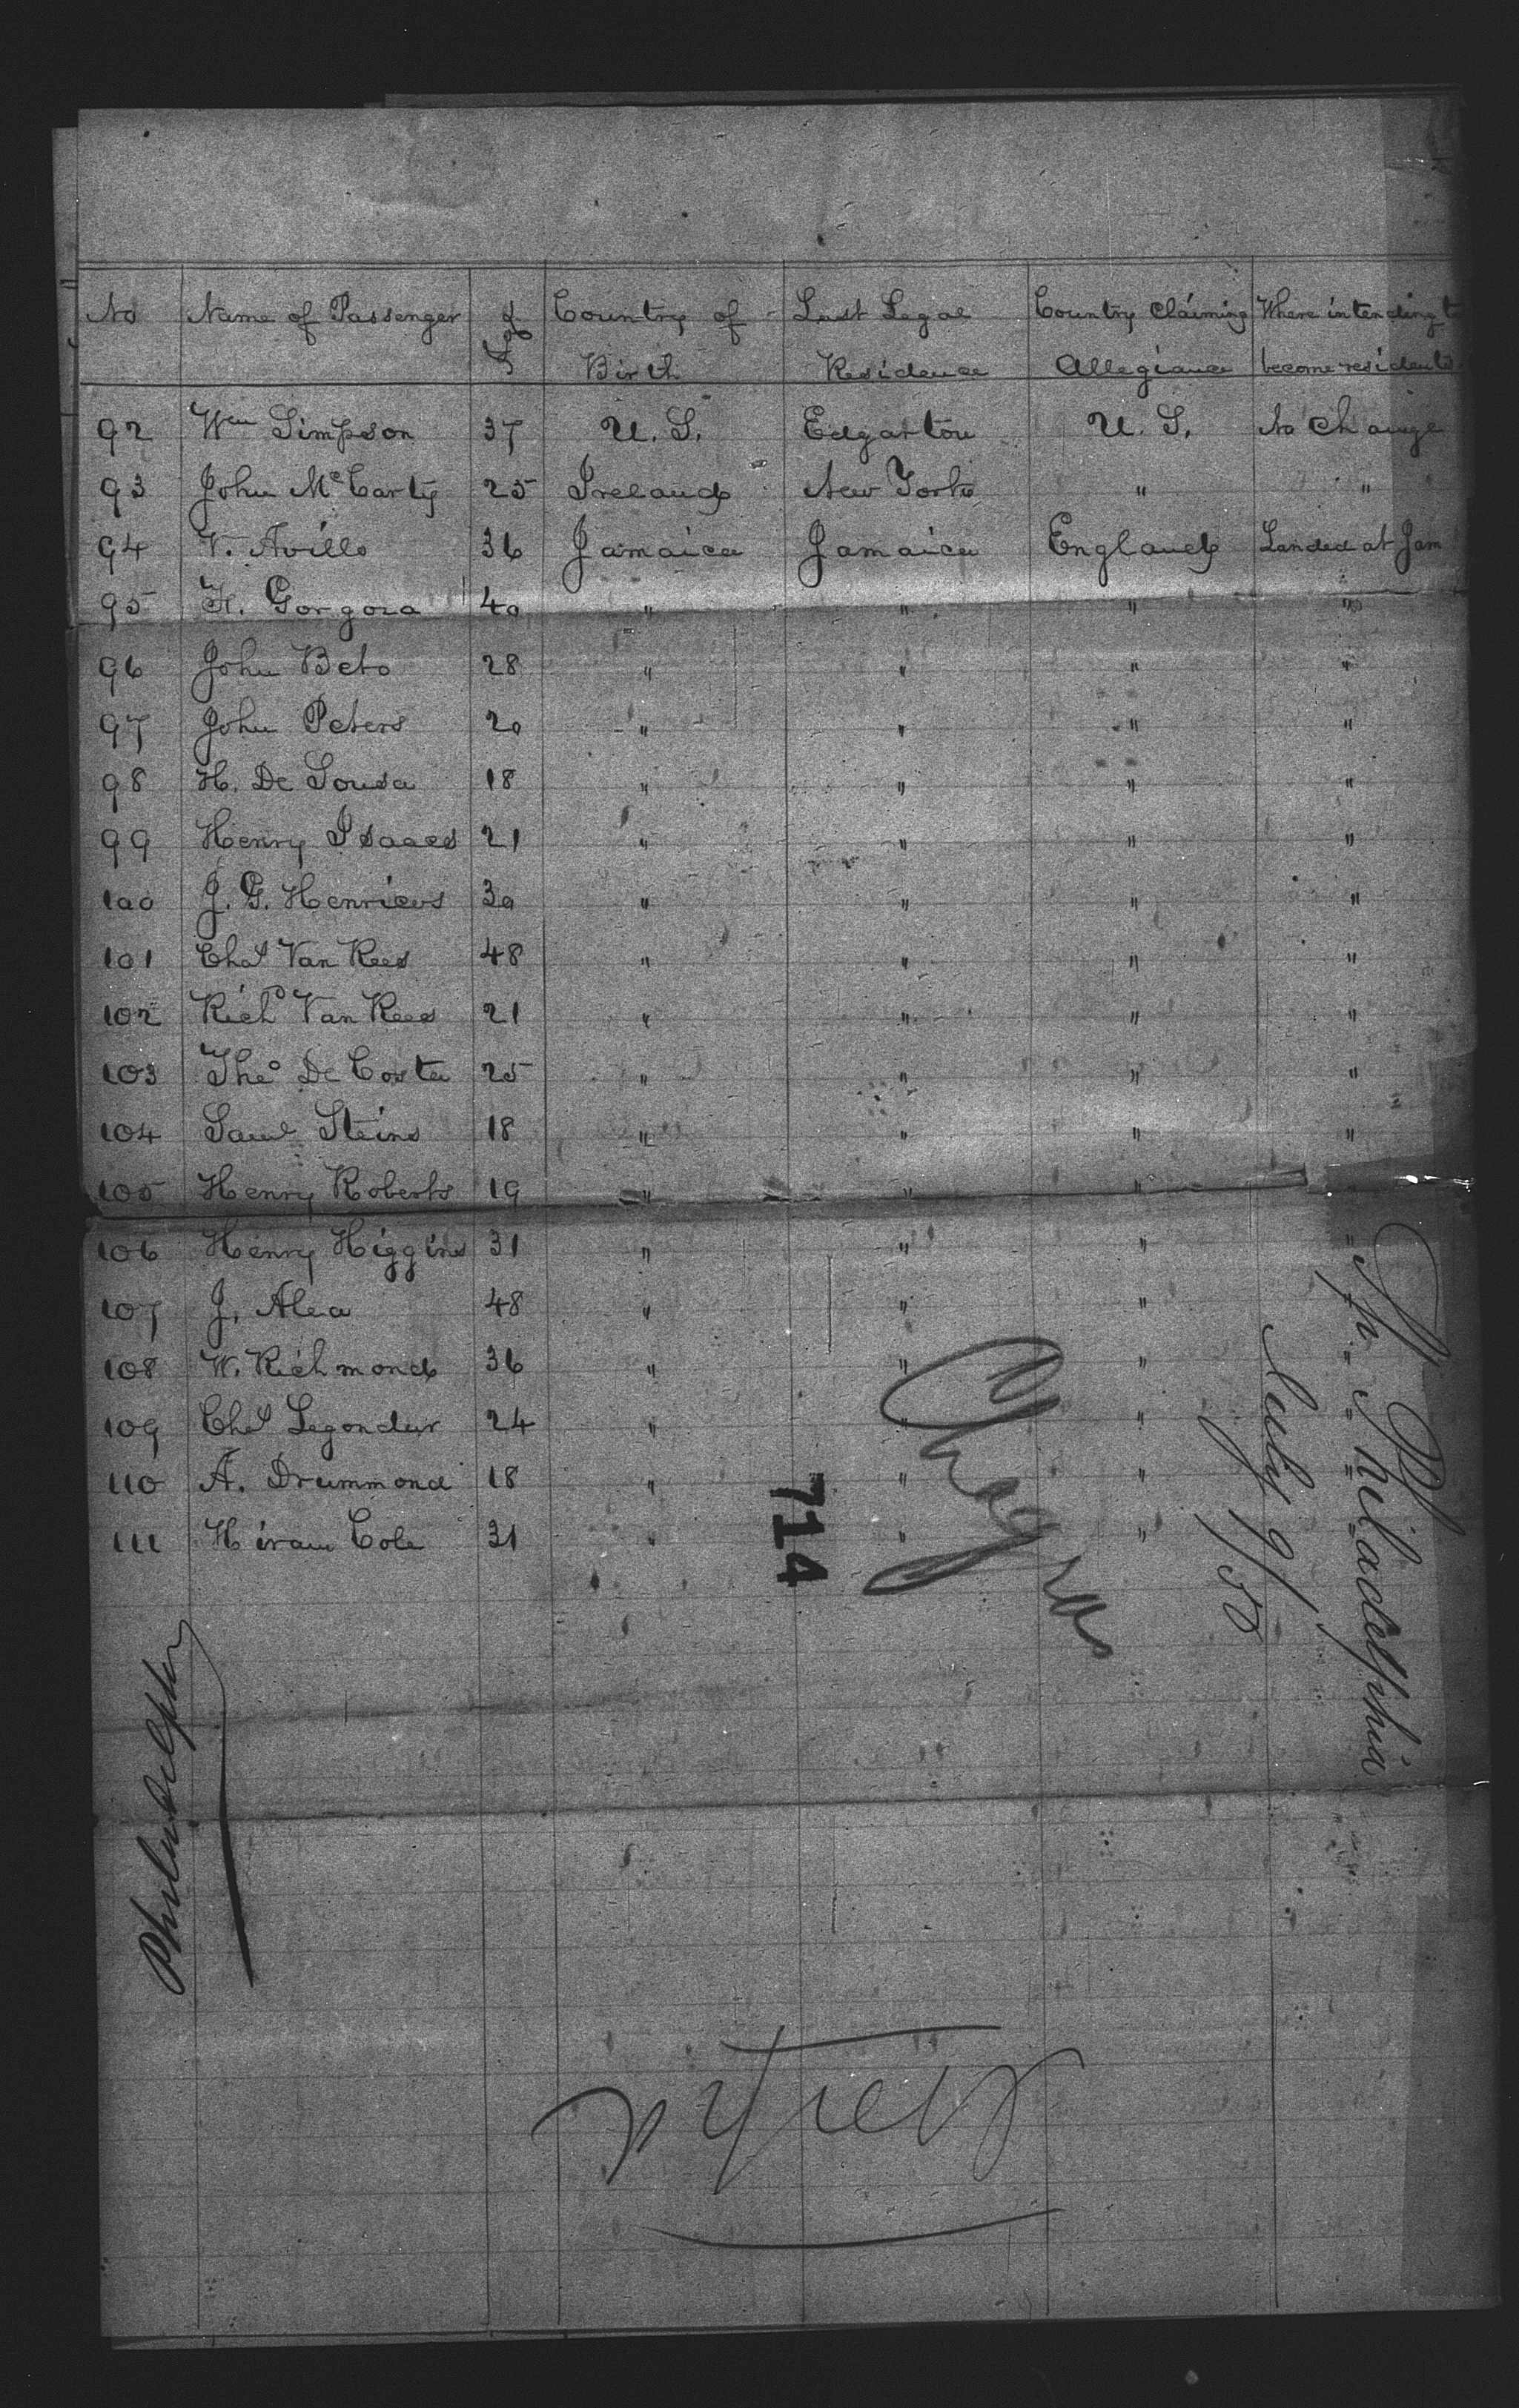 No Name of Passenger Age Country of Birth Last Legal Residence Country Claiming Allegiance Where intending to become residents
92 Wm Simpson 37 U.S. Edgarton U.S. No Change
93 John McCarty 25 Ireland New York " "
94 V. Avillo 36 Jamaica Jamaica England Landed at Jam
95 H. Gorgora 40 " " " "
96 John Beto 28 " " " "
97 John Peters 20 " " " "
98 H. De Sousa 18 " " " "
99 Henry Isaacs 21 " " " "
100 J. G. Henricus 30 " " " "
101 Chas Van Rees 48 " " " "
102 Richd Van Rees 21 " " " "
103 Tho De Costa 25 " " " "
104 Saml Steins 18 " " " "
105 Henry Roberts 19 " " " "
106 Henry Higgins 31 " " " "
107 J. Alea 48 " " " "
108 W. Richmond 36 " " " "
109 Chas Legondur 24 " " " "
110 A. Drummond 18 " " " "
111 Hiram Cole 31 " " "
Philadelphia
July 9/52
Chagres
714
Philadelphia